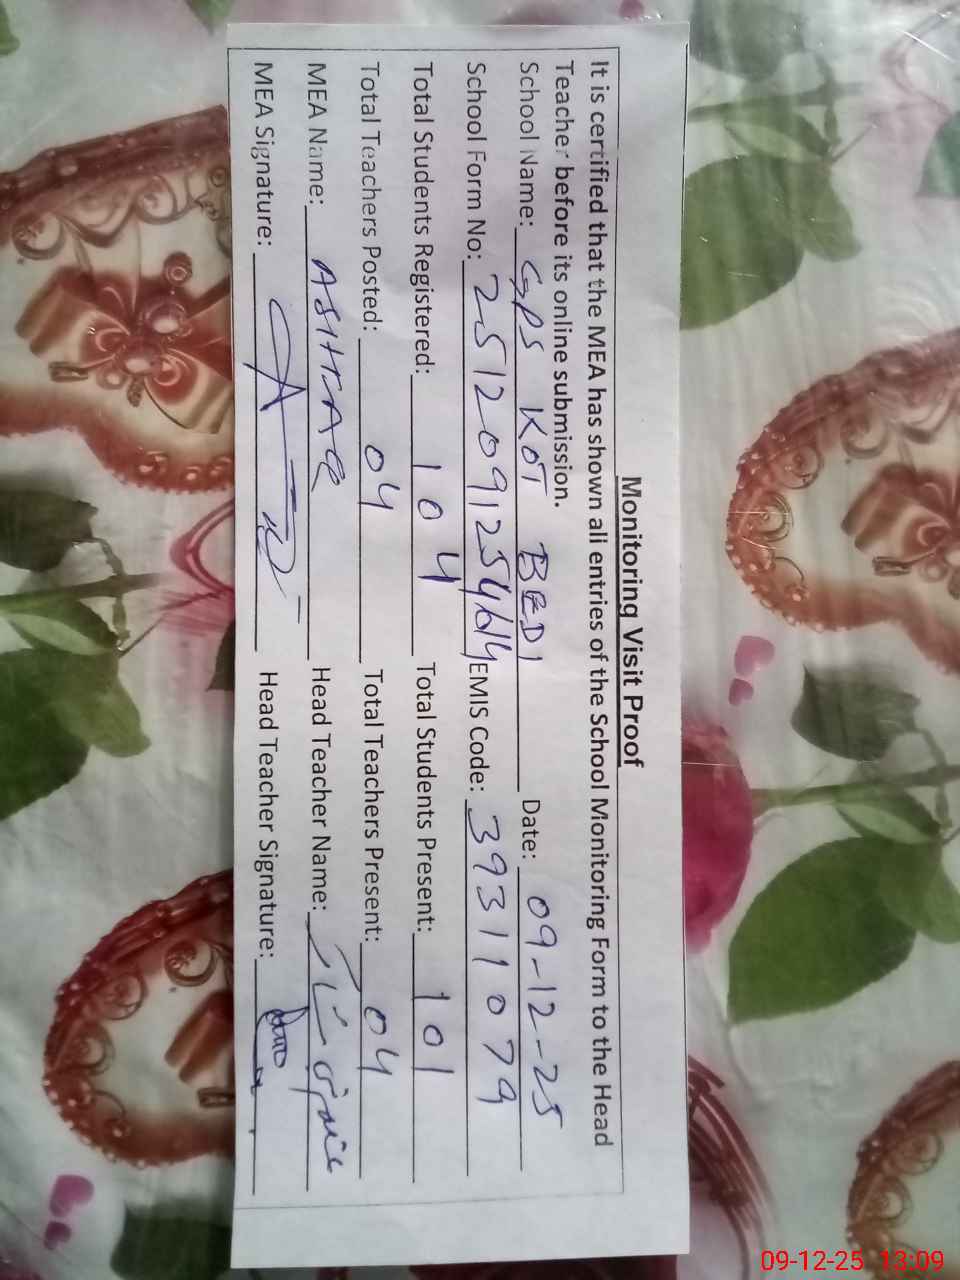 Monitoring Visit Proof
It is certified that the MEA has shown all entries of the School Monitoring Form to the Head
Teacher before its online submission.
School Name: GPS KOT BEDI Date: 09-12-25
School Form No: 2512091254614 EMIS Code: 39311079
Total Students Registered: 104 Total Students Present: 101
Total Teachers Posted: 04 Total Teachers Present: 04
MEA Name: ASHFAQ Head Teacher Name:
MEA Signature: Head Teacher Signature:
09-12-25 13:09